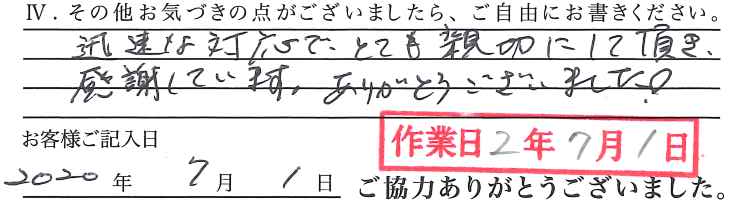 Ⅳ．その他お気づきの点がございましたら、ご自由にお書きください。
迅速な対応で、とても親切にして頂き、
感謝しています。ありがとうございました！
お客様ご記入日
作業日2年7月1日
2020年 7月 1日
ご協力ありがとうございました。